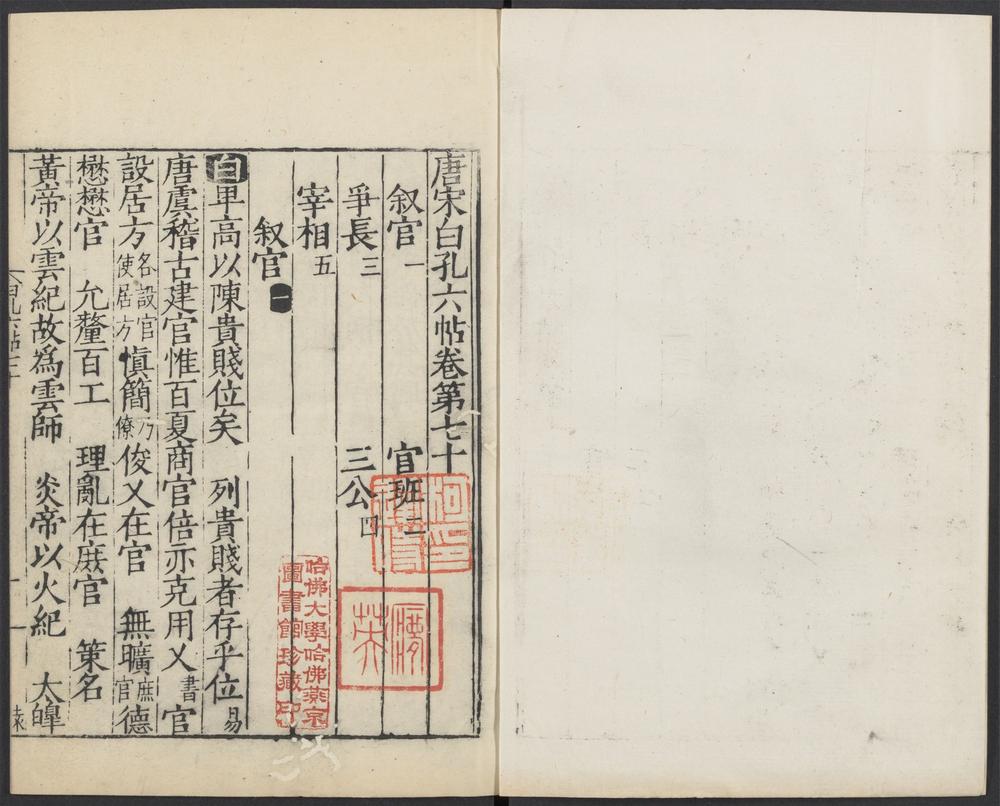 唐宋白孔六帖卷第七十
叙官一　官班二
爭長三　三公四
宰相五
叙官一
白卑高以陳貴賤位矣　列貴賤者存乎位易
唐虞稽古建官惟百夏商官倍亦克用乂書官
設居方各設官使居方慎簡乃僚俊乂在官　無曠庶官德
懋懋官　允釐百工　理亂在庶官　策名
黃帝以雲紀故爲雲師　炎帝以火紀　太皥
哈佛大學哈佛燕京
圖書館珍藏印